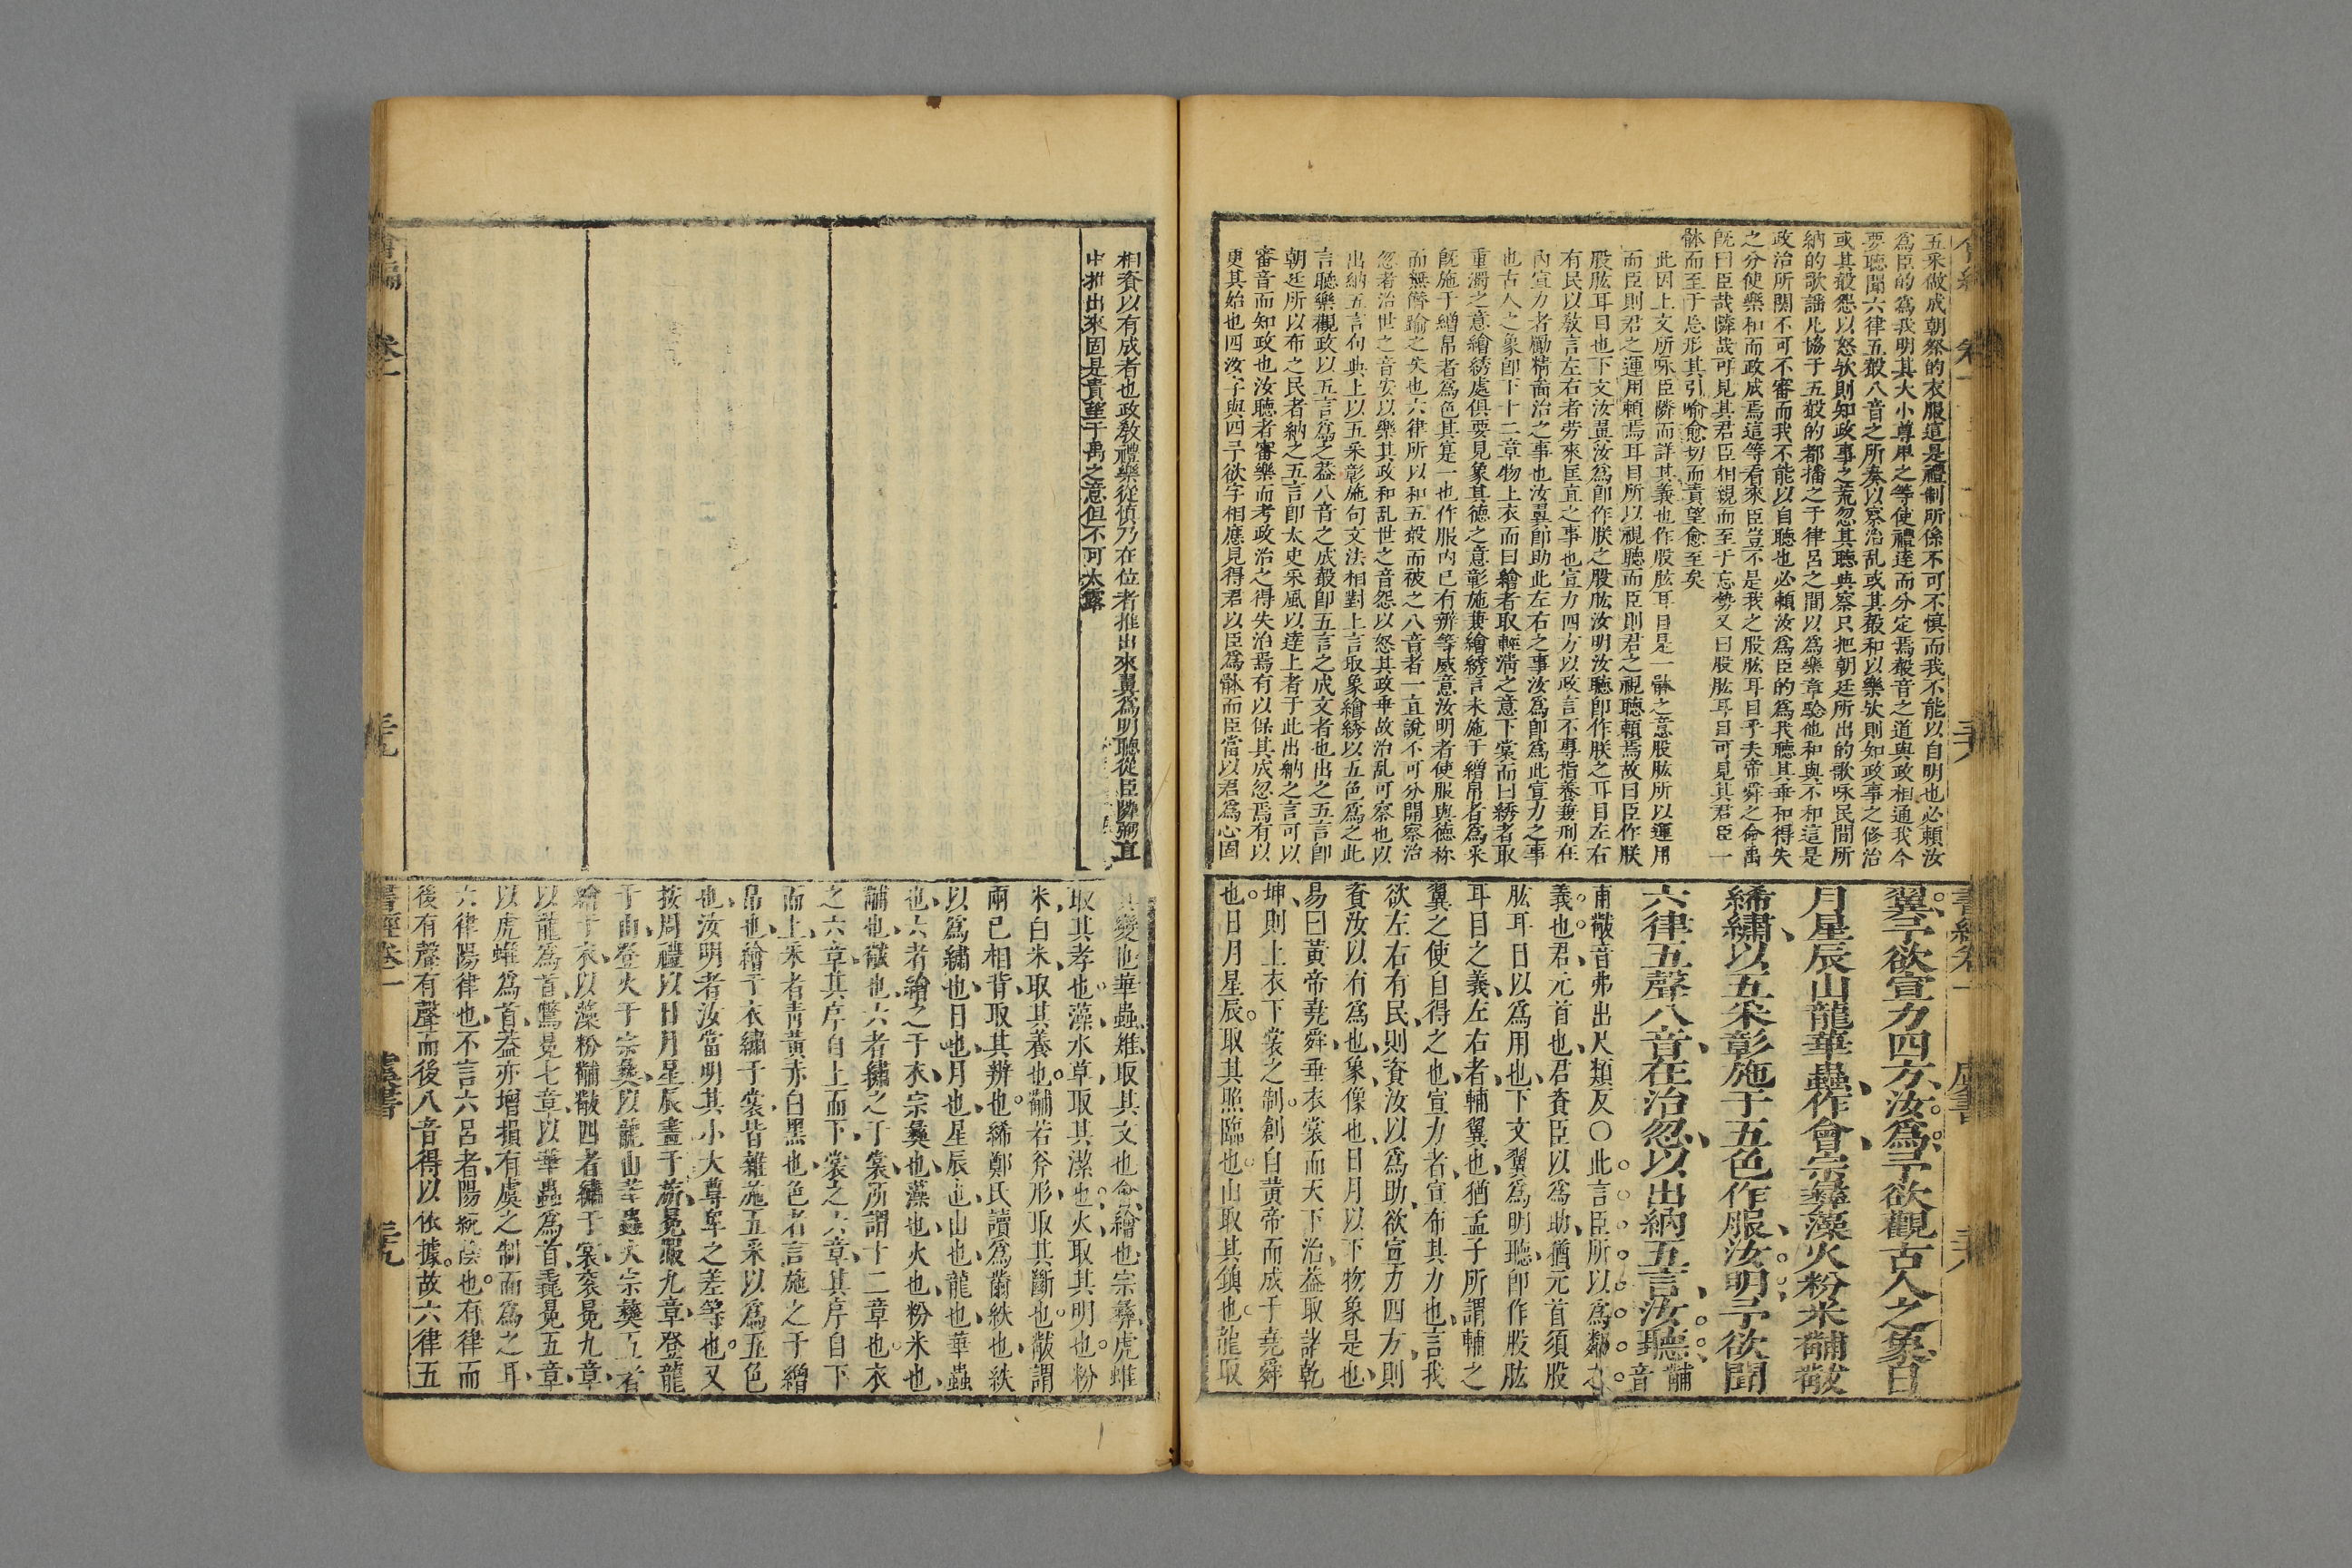 五采做成朝祭的衣服這是禮制所係不可不慎而我不能以自明也必賴汝
為臣的為我明其大小尊卑之等使禮達而分定焉聲音之道與政相通我今
要聽聞六律五聲八音之所奏以察治乱或其聲和以樂欤則知政事之修治
或其聲怨以怒欤則知政事之荒忽其聽與察只把朝廷所出的歌咏民間所
納的歌謡凡協于五聲的都播之于律呂之間以為樂章騐他和與不和這是
政治所関不可不審而我不能以自聽也必頼汝為臣的為我聽其乖和得失
之分使樂和而政成焉這等看來臣豈不是我之股肱耳目乎夫帝舜之命禹
既曰臣哉隣哉可見其君臣相親而至于忘勢又曰股肱耳目可見其君臣一
骵而至于忘形其引喻愈切而責望愈至矣
此因上文所咏臣隣而詳其義也作股肱耳目是一骵之意股肱所以運用
而臣則君之運用頼焉耳目所以視聽而臣則君之視聽頼焉故曰臣作朕
股肱耳目也下文汝翼汝為卽作朕之股肱汝明汝聽卽作朕之耳目左右
有民以敎言左右者劳來匡直之事也宣力四方以政言不專指養兼刑在
內宣力者勵精啚治之事也汝翼卽助此左右之事汝為卽為此宣力之事
也古人之象卽下十二章物上衣而曰繪者取輕清之意下裳而曰綉者取
重濁之意繪綉處俱要見象其德之意彰施兼繪綉言未施于繒帛者為采
旣施于繒帛者為色其寔一也作服內已有辨等威意汝明者使服與德称
而無僭踰之失也六律所以和五聲而被之八音者一直說不可分開察治
忽者治世之音安以樂其政和乱世之音怨以怒其政乖故治乱可察也以
出納五言句與上以五采彰施句文法相對上言取象繪綉以五色為之此
言聽樂觀政以五言為之葢八音之成聲卽五言之成文者也出之五言卽
朝廷所以布之民者納之五言卽太史采風以達上者于此出納之言可以
審音而知政也汝聽者審樂而考政治之得失治焉有以保其成忽焉有以
更其始也四汝字與四予欲字相應見得君以臣為骵而臣當以君為心固
書經卷一 虞書 三八
翼予欲宣力四方汝爲予欲觀古人之象日
月星辰山龍華蟲作會宗彝藻火粉米黼黻
絺繡以五采彰施于五色作服汝明予欲聞
六律五聲八音在治忽以出納五言汝聽黼音
甫黻音弗出尺類反○此言臣所以爲鄰之
義也君元首也君資臣以爲助猶元首須股
肱耳目以爲用也下文翼爲明聽卽作股肱
耳目之義左右者輔翼也猶孟子所謂輔之
翼之使自得之也宣力者宣布其力也言我
欲左右有民則資汝以爲助欲宣力四方則
資汝以有爲也象像也日月以下物象是也
易曰黃帝堯舜垂衣裳而天下治葢取諸乾
坤則上衣下裳之制創自黃帝而成于堯舜
也日月星辰取其照臨也山取其鎮也龍取
相資以有成者也政敎禮樂從慎乃在位者推出來翼為明聽從臣隣弼直
中推出來固是責望于禹之意但不可太露
其變也華蟲雉取其文也會繪也宗彝虎蜼
取其孝也藻水草取其潔也火取其明也粉
米白米取其養也黼若斧形取其斷也黻謂
兩已相背取其辨也絺鄭氏讀爲黹紩也紩
以爲繡也日也月也星辰也山也龍也華蟲
也六者繪之于衣宗彝也藻也火也粉米也
黼也黻也六者繡之于裳所謂十二章也衣
之六章其序自上而下裳之六章其序自下
而上采者青黃赤白黑也色者言施之于繒
帛也繪于衣繡于裳皆雜施五采以爲五色
也汝明者汝當明其小大尊卑之差等也又
按周禮以日月星辰畫于旂冕服九章登龍
于山登火于宗彝以龍山華蟲火宗彝五者
繪于衣以藻粉黼黻四者繡于裳袞冕九章
以龍爲首鷩冕七章以華蟲爲首毳冕五章
以虎蜼爲首葢亦增損有虞之制而爲之耳
六律陽律也不言六呂者陽統陰也有律而
後有聲有聲而後八音得以依據故六律五
書經卷一 虞書 三九